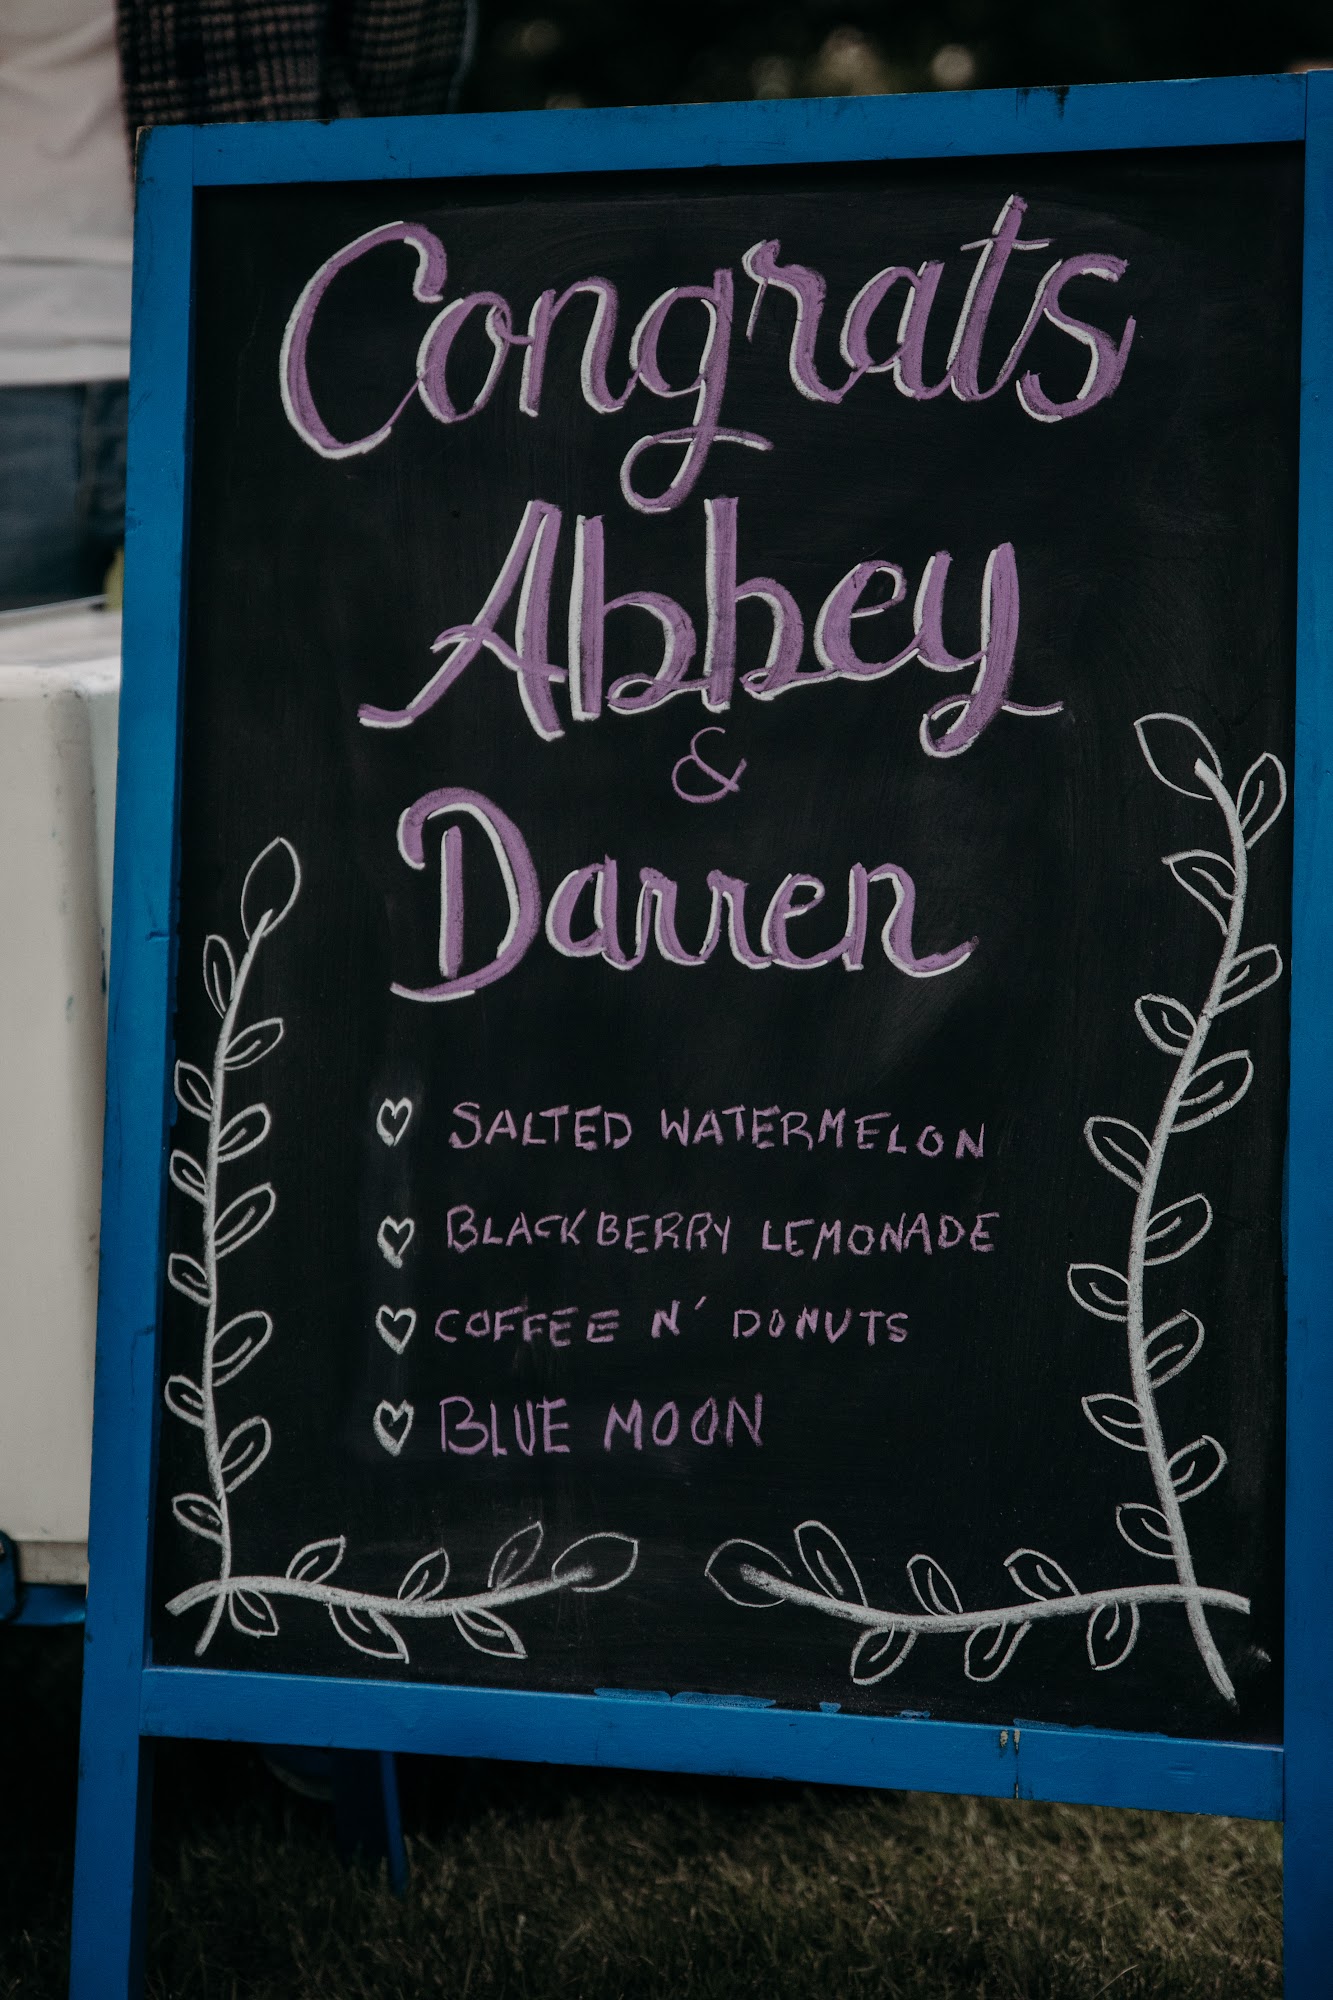 Congrats
Abbey
&
Darren
SALTED WATERMELON
BLACKBERRY LEMONADE
COFFEE N' DONUTS
BLUE MOON